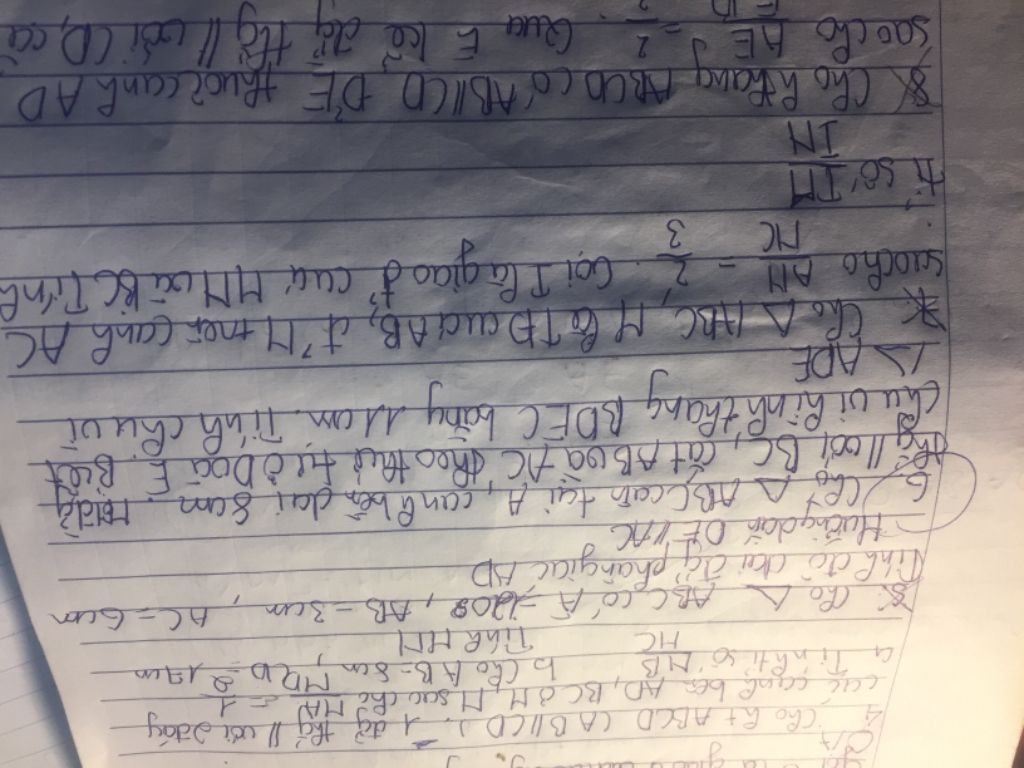 gọi
4 Cho ht ABCD (AB//CD). 1 đg thg // với 2 đáy
các cạnh bên AD, BC ở M sao cho MA/MD = 1/2
a Tính tỉ số MB/MC b Cho AB = 8cm, CD = 17cm
Tính MN
Cho △ ABC có A = 120°, AB = 3cm, AC = 6cm
Tính độ dài đg phân giác AD
Hướng dẫn DE//AC
5 Cho △ ABC cân tại A, cạnh bên dài 8cm. Một đg
thg // với BC, cắt AB và AC theo thứ tự ở D và E. Biết
chu vi hình thang BDEC bằng 11cm. Tính chu vi
△ ADE
Cho △ ABC, M là TĐ của AB, N thuộc cạnh AC
sao cho AN/NC = 2/3. Gọi I là giao đ' của MN và BC. Tính
tỉ số IM/IN
8 Cho h thang ABCD có AB//CD Đ' E thuộc cạnh AD
sao cho AE/ED = 1/2. Qua E kẻ đg thg // với CD, cắ